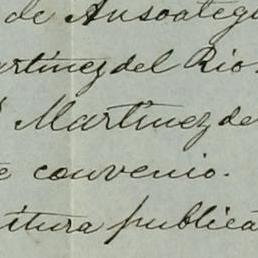 de Ansoategu
artinez del Rio.
Martinez de
e convenio.
itura publica